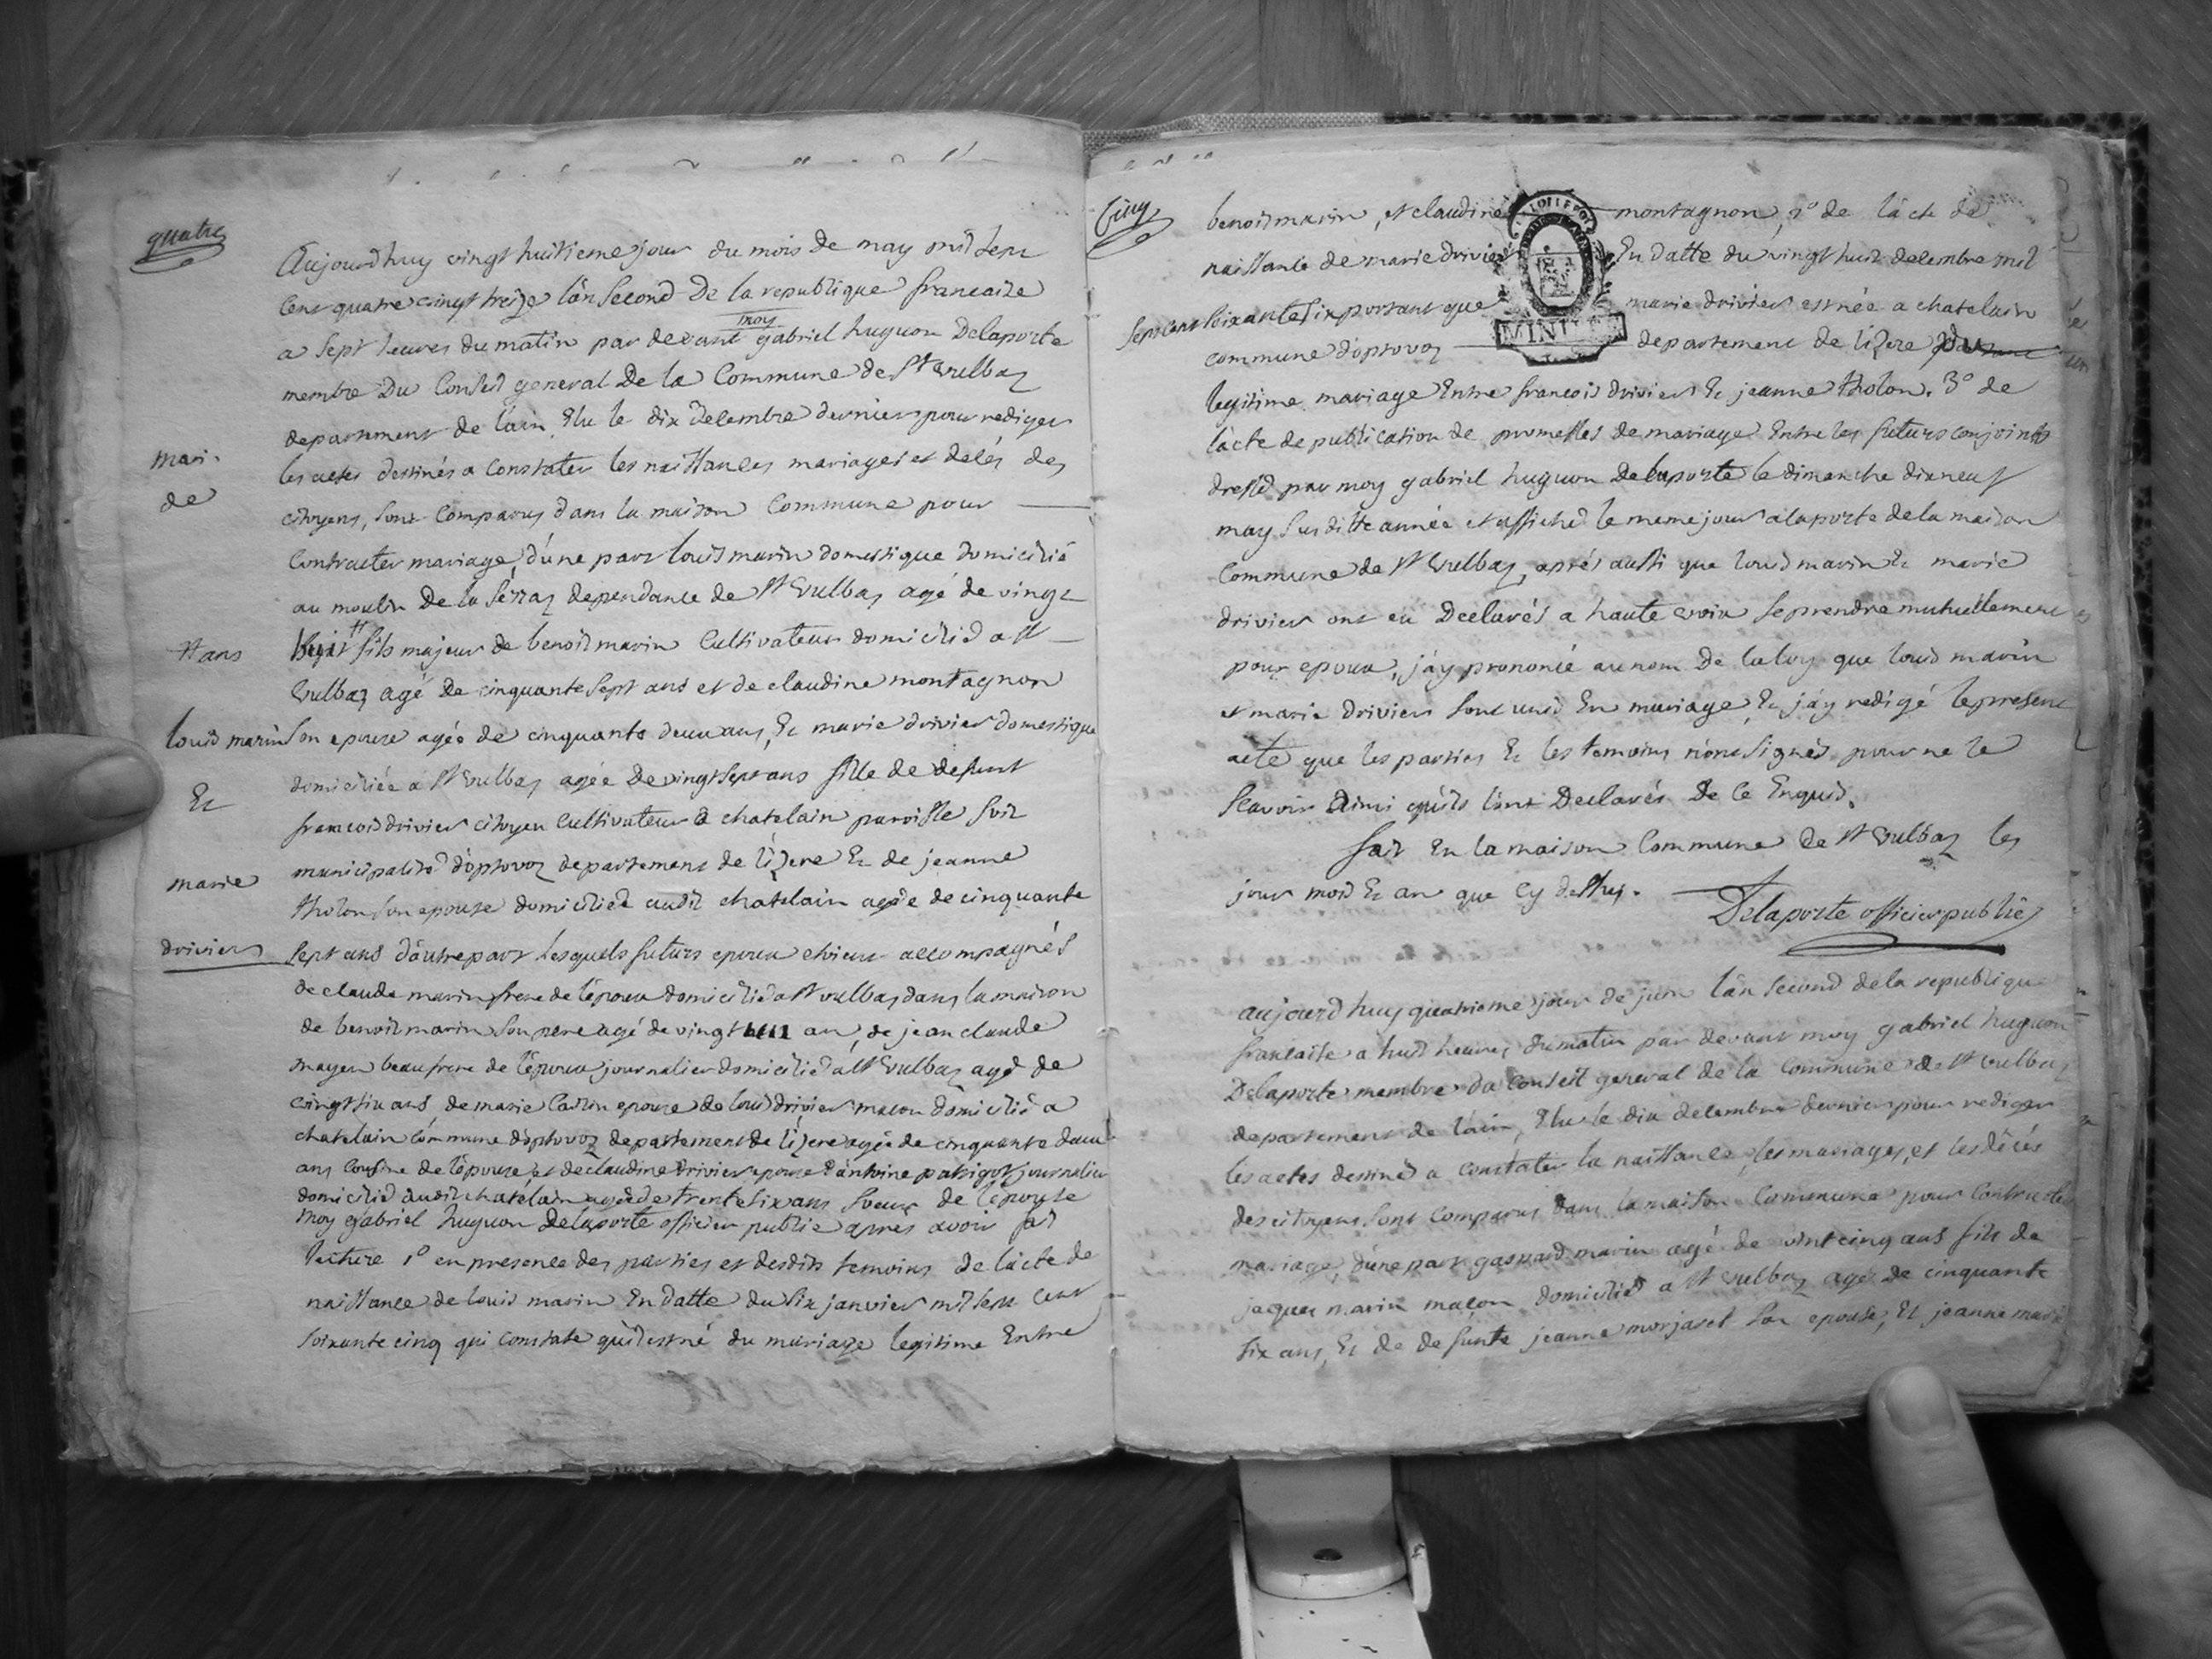 quatre
Aujourdhuy vingt huitieme jour du mois de may mil sept
cent quatre vingt treize l'an second De la republique francaise
a sept heures du matin par devant moy gabriel huguon Delaporte
membre Du Conseil general De la Commune de St Vulbaz
departement de l'ain Elu le dix decembre dernier pour rediger
mari.
les actes destinés a constater les naissances mariages et décés des
de
citoyens, sont comparus dans la maison Commune pour
Contracter mariage, d'une part louis marin domestique domicilié
au moulin De la serraz dependance de St Vulbaz agé de vingt
# ans
huit # fils majeur de benoit marin Cultivateur domicilié a St
Vulbaz agé De cinquante sept ans et de claudine montagnon
louis marin
son epouse agée de cinquante deux ans, Et marie drivier domestique
domiciliée a St Vulbaz agée De vingt sept ans fille de defunt
Et
francois drivier citoyen Cultivateur a chatelain paroisse soit
municipalité d'optovoz departement de l'izere Et de jeanne
marie
tholon son epouse domiciliée audit chatelain agée de cinquante
drivier
sept ans d'autre part lesquels futurs epoux etoient accompagnés
de claude marin frere de l'epoux domicilié a St vulbaz dans la maison
de benoit marin son pere agé de vingt an, de jean claude
mayen beaufrere de l'epoux journalier domicilié a St Vulbaz agé de
vingt six ans, de marie epouse de louis drivier macon domicilié a
chatelain commune d'optovoz departement de l'izere agée de cinquante deux
ans cousine de l'epouse, et de claudine drivier epouse d'antoine journalier
domicilié audit chatelain agée de trente six ans soeur de l'epouse
moy gabriel huguon Delaporte officier public apres avoir fait
lecture 1° en presence des parties et desdits temoins de l'acte de
naissance de louis marin En datte du six janvier mil sept cent
soixante cinq qui constate qu'il est né du mariage legitime Entre
Cinq
benoit marin, et claudine montagnon, 2° de l'acte de
naissance de marie drivier En datte du vingt huit decembre mil
sept cent soixante six portant que marie drivier est née a chatelain
commune d'optovoz departement de l'izere du
legitime mariage Entre francois drivier Et jeanne tholon. 3° de
l'acte de publication de promesses de mariage Entre les futurs conjoints
dressé par moy gabriel huguon Delaporte le dimanche dixneuf
may susditte année et affiché le meme jour a la porte de la maison
Commune de St Vulbaz, aprés aussi que louis marin Et marie
drivier ont eu Declarés a haute voix se prendre mutuellement
pour epoux, j'ay prononcé au nom De la loy que louis marin
et marie Drivier sont unis En mariage, Et j'ay redigé le present
acte que les parties Et les temoins n'ont signés pour ne le
scavoir ainsi qu'ils l'ont Declarés De ce Enquis.
fait En la maison Commune de St Vulbaz les
jour mois Et an que cy dessus.
Delaporte officier public
aujourd'huy quatrieme jour de juin l'an second de la republique
francaise a huit heures du matin par devant moy gabriel huguon
Delaporte membre du conseil general de la Commune de St vulbaz
departement de l'ain, Elu le dix decembre dernier pour rediger
les actes destiné a constater la naissance, les mariages, et les décés
des citoyens sont comparus dans la maison Commune pour Contracter
mariage, d'une part gaspard marin agé de vint cinq ans fils de
jaques marin maçon domicilié a St vulbaz agé de cinquante
six ans, Et de defunte jeanne son epouse, Et jeanne marie
MINUTE